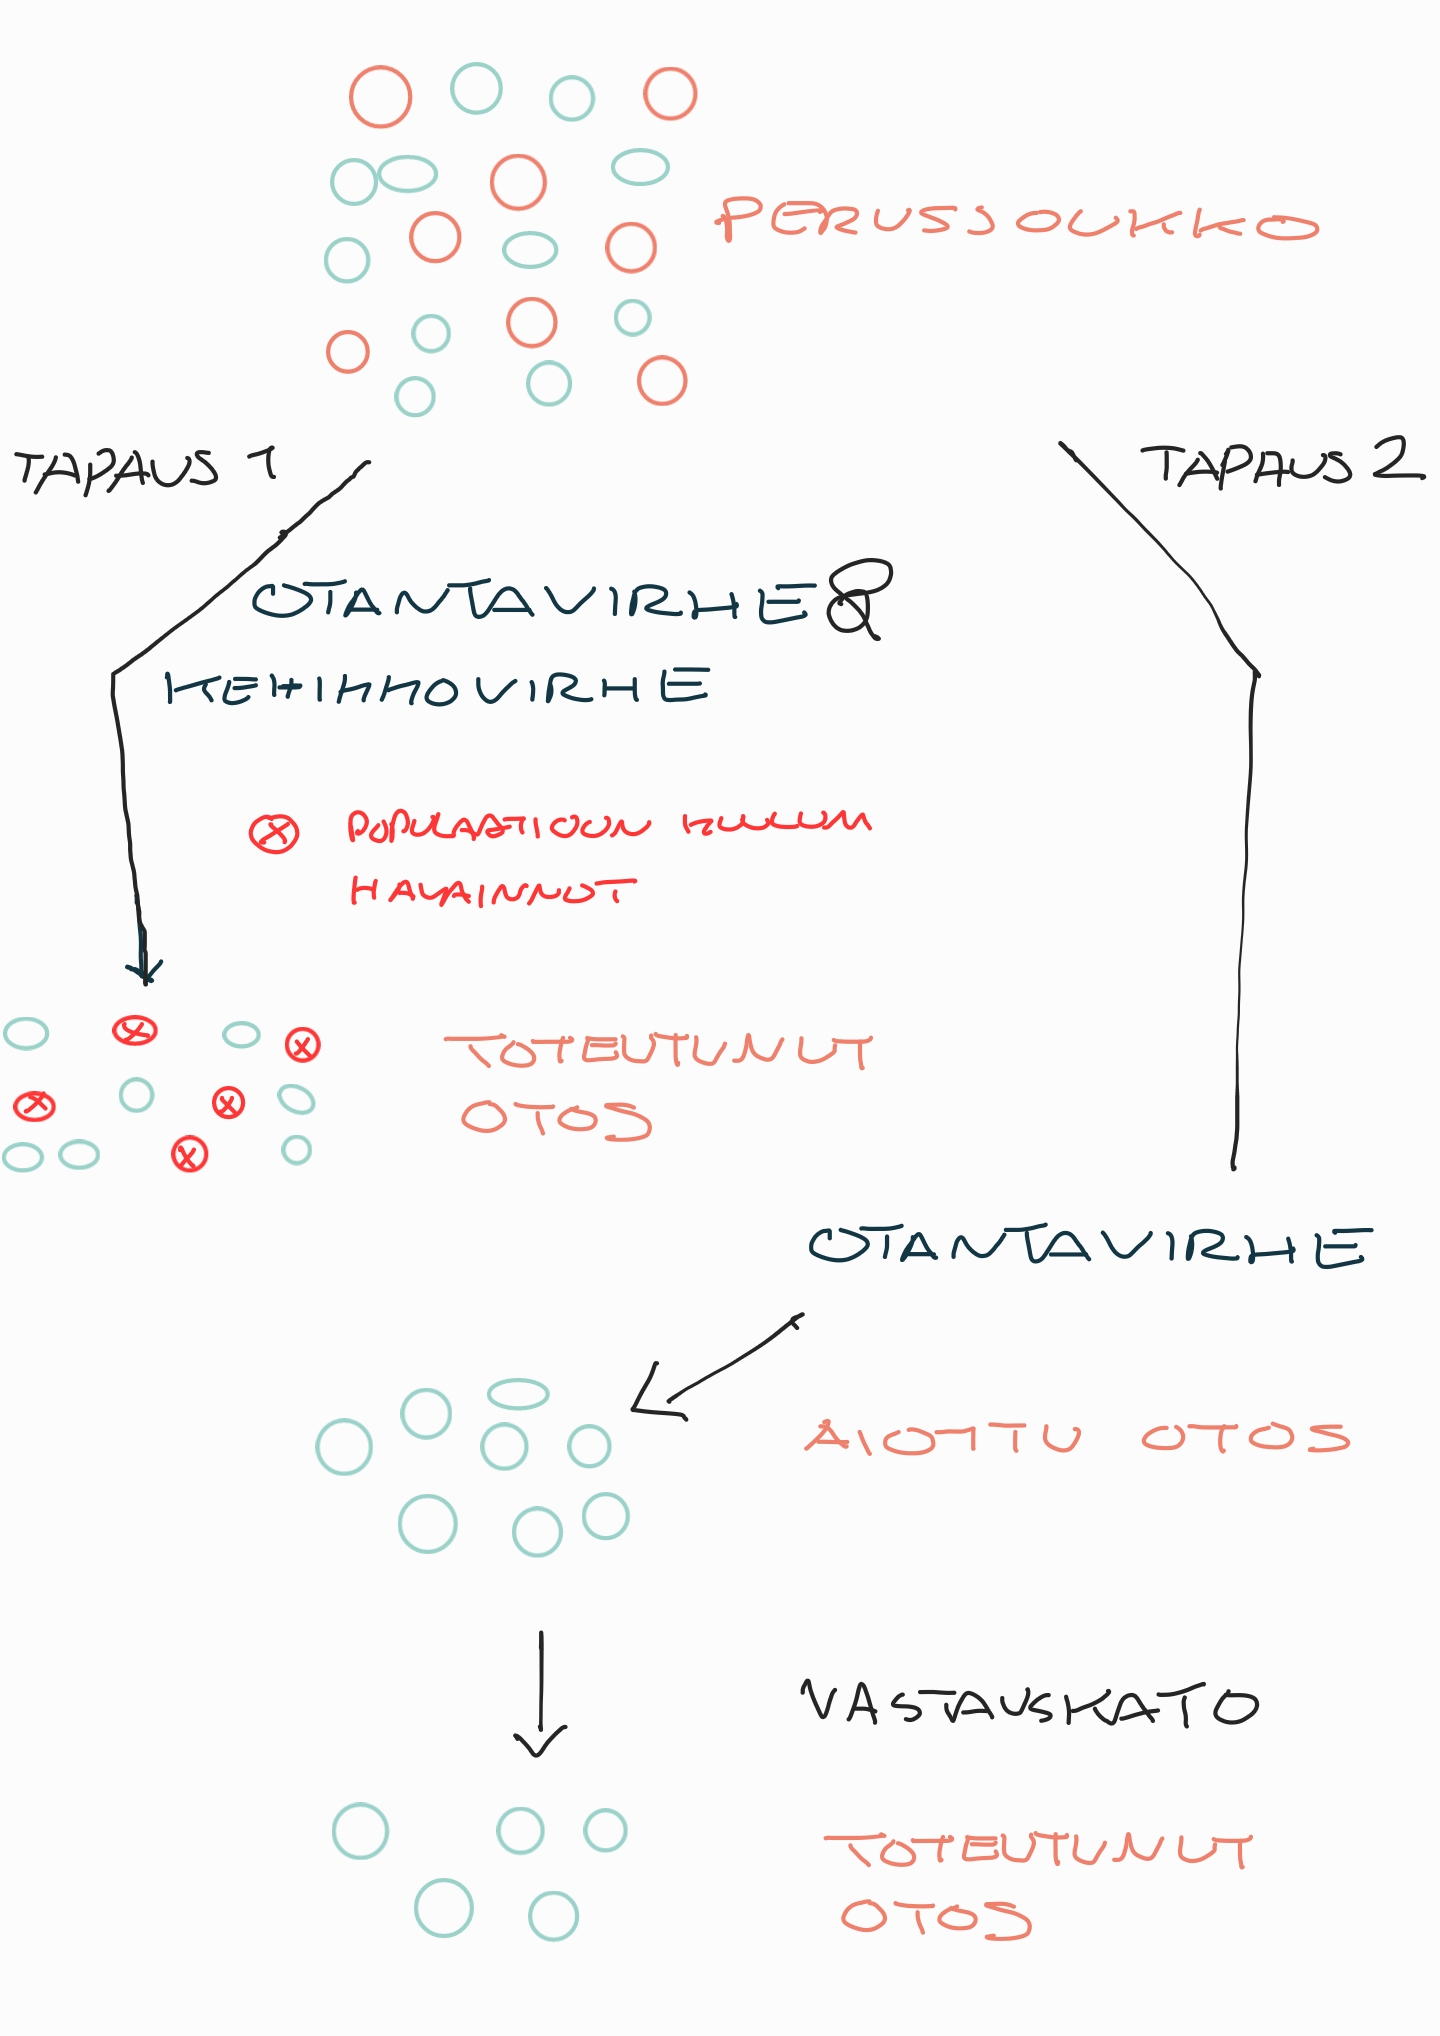 PERUSSOUKKO
TAPAUS 1
TAPAUS 2
OTANTAVIRHE &
KEHIKKOVIRHE
POPULAATIOON
HAVAINNOT
TOTEUTUNUT
OTOS
OTANTAVIRHE
AIOTTU OTOS
VASTAUSKATO
TOTEUTUNUT
OTOS